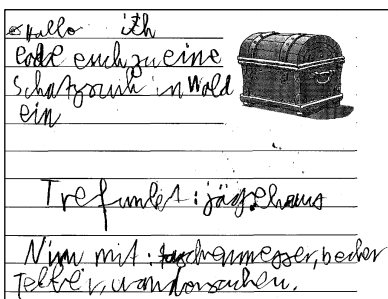 Hallo ich
lade euch zu eine
Schatzsuch in Wald
ein
Trefunkt: jägehaus
Nim mit: taschenmesser, becher